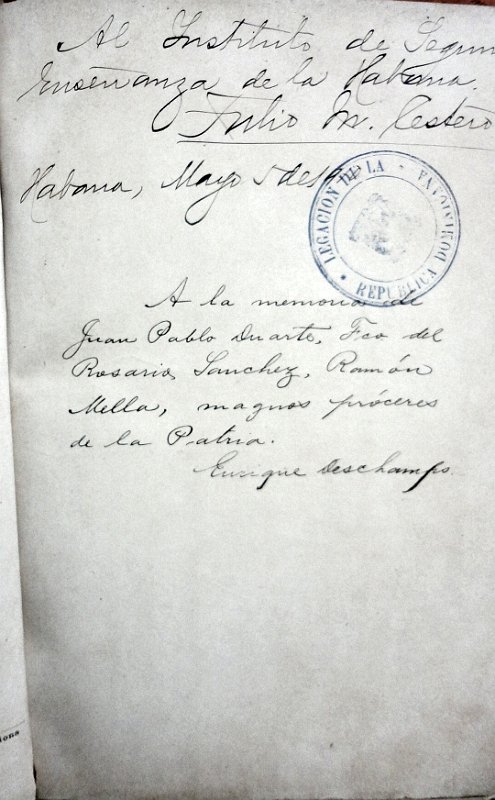 Al Instituto de Segun
Enseñanza de la Habana.
Julio M. Cestero
Habana, Mayo 5 de 19
LEGACION DE LA REPUBLICA DOMINICANA
A la memoria de
Juan Pablo Duarte, Fco del
Rosario Sanchez, Ramón
Mella, magnos próceres
de la Patria.
Enrique Deschamps.
ions